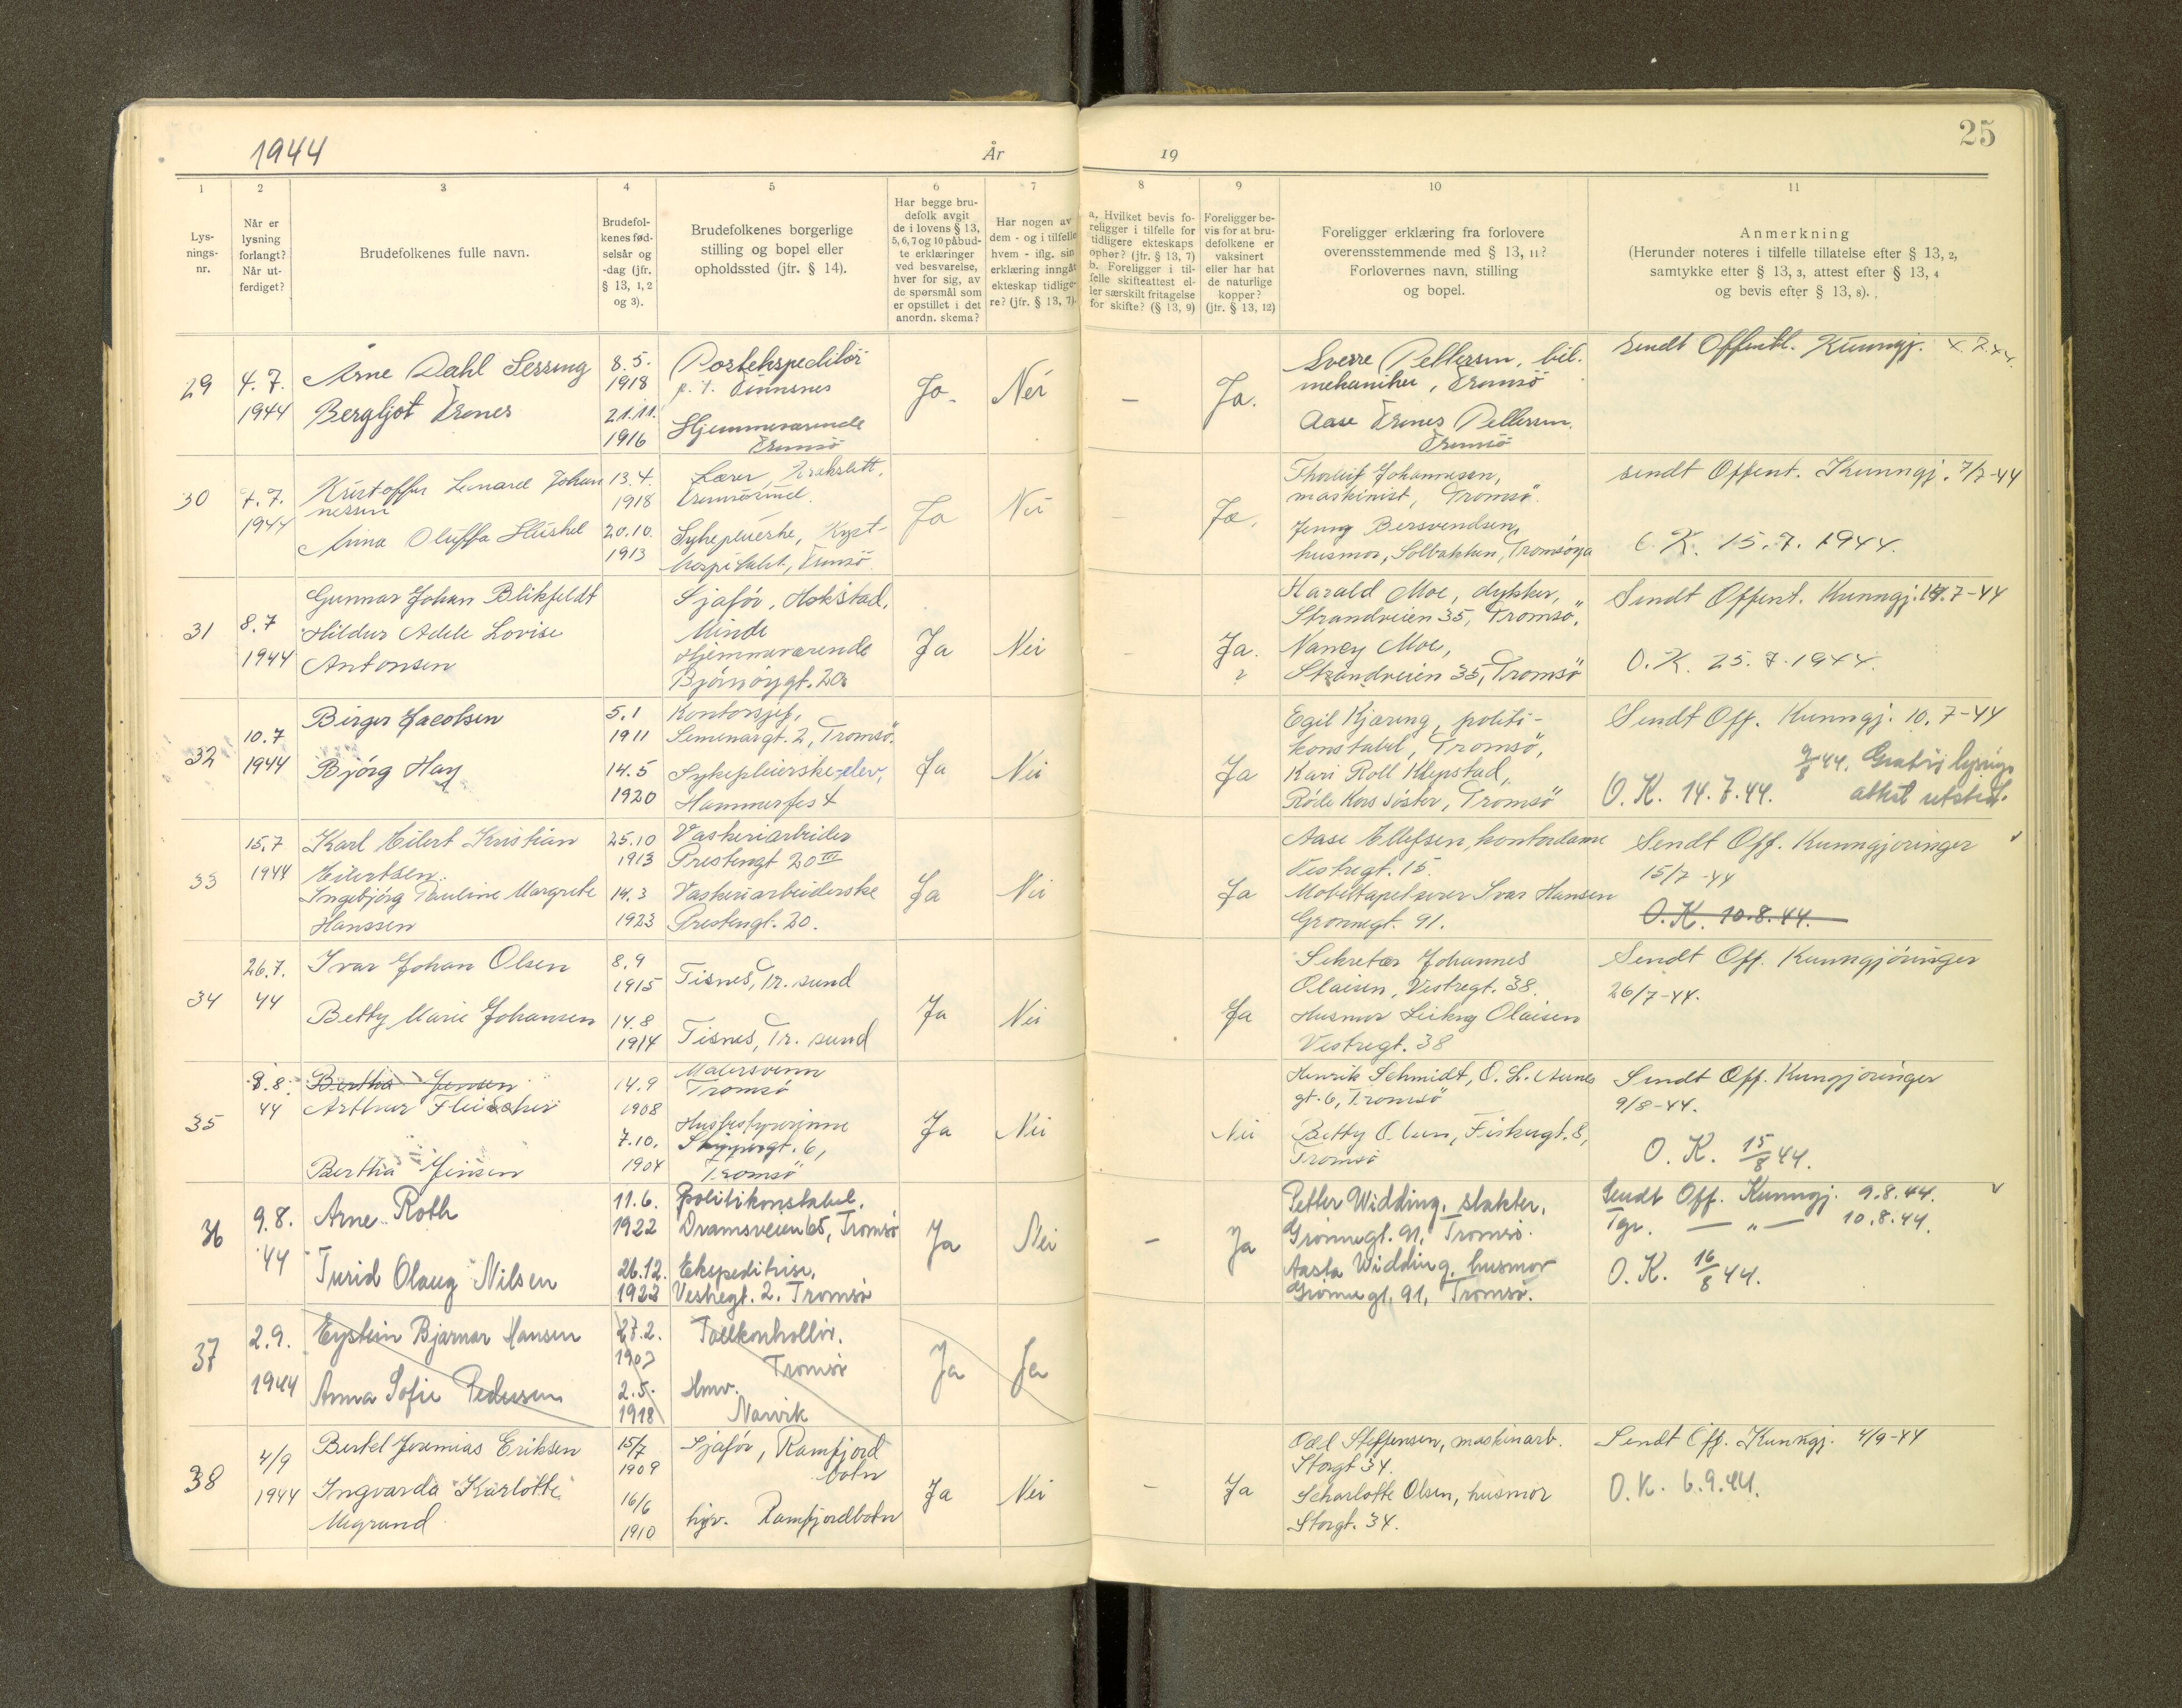 1944
År
19
25
1
2
3
4
5
6
7
8
9
10
11
Lys-
nings-
nr.
Når er
lysning
forlangt?
Når ut-
ferdiget?
Brudefolkenes fulle navn.
Brudefol-
kenes fød-
selsår og
-dag (jfr.
§ 13, 1, 2
og 3).
Brudefolkenes borgerlige
stilling og bopel eller
opholdssted (jfr. § 14).
Har begge bru-
defolk avgit
de i lovens § 13,
5, 6, 7 og 10 påbud-
te erklæringer
ved besvarelse,
hver for sig, av
de spørsmål som
er opstillet i det
anordn. skema?
Har nogen av
dem - og i tilfelle
hvem - iflg. sin
erklæring inngåt
ekteskap tidlige-
re? (jfr. § 13, 7).
a. Hvilket bevis fo-
religger i tilfelle for
tidligere ekteskaps
ophør? (jfr. § 13, 7)
b. Foreligger i til-
felle skifteattest el-
ler særskilt fritagelse
for skifte? (§ 13, 9)
Foreligger be-
vis for at bru-
defolkene er
vaksinert
eller har hat
de naturlige
kopper?
(jfr. § 13, 12)
Foreligger erklæring fra forlovere
overensstemmende med § 13, 11?
Forlovernes navn, stilling
og bopel.
Anmerkning
(Herunder noteres i tilfelle tillatelse efter § 13, 2,
samtykke efter § 13, 3, attest efter § 13, 4
og bevis efter § 13, 8).
29
4. 7.
1944
Arne Dahl
Bergljot Trones
8. 5.
1918
21.11.
1916
Postekspeditör
p. t. Finnsnes
Hjemmeværende
Tromsö
Ja
Nei
—
Ja.
Sverre Pettersen, bil.
mekaniker, Tromsö
Aase Trones Pettersen.
Tromsö
Sendt Offentl. Kunngj. 4.7.44.
30
7. 7.
1944
Kristoffer Lenard Johan
nessen
Anna Oluffa
13. 4.
1918
20.10.
1913
Lærer,
Tromsösund.
Sykepleierske, Kyst-
hospitalet, Tromsö.
Ja
Nei
Ja.
Thorleif Johannesen,
maskinist, Tromsö.
Jenny Bersvendsen,
husmor, Solbakken, Tromsöya
sendt Offent. Kunngj. 7/7-44
O. K. 15. 7. 1944.
31
8. 7
1944
Gunnar Johan Blikfeldt
Hildur Adele Lovise
Antonsen
Sjaför, Hokstad,
Minde
Hjemmeværende
Björnöygt. 20
Ja
Nei
Ja.
?
Harald Moe, dykker,
Strandveien 35, Tromsö.
Nancy Moe,
Strandveien 35, Tromsö
Sendt Offent. Kunngj. 7-44
O. K. 25. 7. 1944.
32
10. 7
1944
Birger Jacobsen
Björg Hay
5. 1
1911
14. 5
1920
Kontorsjef,
Seminargt. 2, Tromsö.
Sykepleierske-elev,
Hammerfest
Ja
Nei
Ja
Egil Kjæreng, politi-
konstabel, Tromsö,
Kari Roll Klepstad,
Röde Kors söster, Tromsö
Sendt Off. Kunngj. 10. 7-44
9/8 44. Gratis lysings
O. K. 14. 7. 44. attest utsted.
33
15.7
1944
Karl Eilert Kristian
Eilertsen
Ingebjörg Pauline Margrete
Hanssen
25.10
1913
14. 3
1923
Vaskeriarbeider
Prestengt 20 III
Vaskeriarbeiderske
Prestengt. 20.
Ja
Nei
Ja
Aase Ellefsen, kontordame
Vestregt. 15.
Möbeltapetserer Ivar Hansen
Grönnegt. 91.
Sendt Off. Kunngjöringer
15/7 -44
O. K. 10. 8. 44.
34
26.7.
44
Ivar Johan Olsen
Betty Marie Johansen
8. 9
1915
14. 8
1914
Tisnes, Tr. sund
Tisnes, Tr. sund
Ja
Nei
Ja
Sekretær Johannes
Olaisen, Vestregt. 38.
Husmor Olaisen
Vestregt. 38
Sendt Off. Kunngjöringer
26/7-44.
35
9. 8.
44
Bertha Jensen
Arthur Fleischer
Bertha Jensen
14. 9
1908
7. 10.
1904
Malersvenn
Tromsö
Husbestyrerinne
Skippergt. 6,
Tromsö
Ja
Nei
Nei
Henrik Schmidt, O. L. Aunes
gt. 6, Tromsö
Betty Olsen, Fiskergt. 8,
Tromsö
Sendt Off. Kungjöringer
9/8-44.
O. K. 15/8 44.
36
9. 8.
44
Arne Roth
Turid Olaug Nilsen
11. 6.
1922
26.12.
1922
Politikonstabel.
Dramsveien 65, Tromsö
Ekspeditrise.
Vestregt. 2. Tromsö
Ja
Nei
—
Ja
Petter Widding, slakter.
Grönnegt. 91, Tromsö.
Aasta Widding, husmor
Grönnegt. 91, Tromsö.
Sendt Off. Kunngj. 9. 8. 44.
Tgr. — „ — 10. 8. 44.
O. K. 16/8 44.
37
2. 9.
1944
Eystein Bjarnar Hansen
Anna Sofie Pedersen
27. 2.
1903
2. 5.
1918
Tollkontrollör.
Tromsö
Hmv.
Narvik
Ja
Ja
38
4/9
1944
Bertel Jeremias Eriksen
Ingvarda Karlotte
Megrund
15/7
1909
16/6
1910
Sjaför, Ramfjord
botn
hjv. Ramfjordbotn
Ja
Nei
—
Ja
Odd Steffensen, maskinarb.
Storgt 34.
Scharlotte Olsen, husmor
Storgt. 34.
Sendt Off. Kunngj. 4/9-44
O. K. 6. 9. 44.